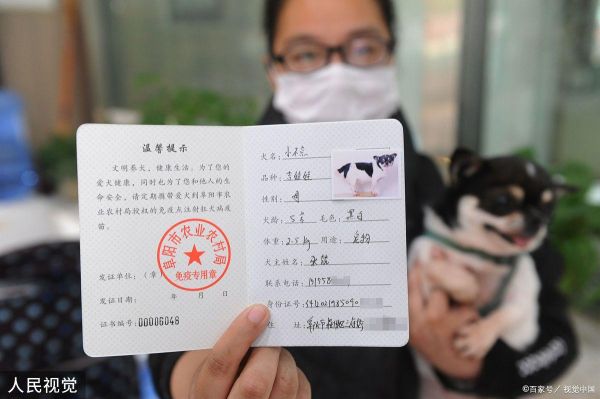 温馨提示
文明养犬，健康生活。为了您的
爱犬健康，同时也为了您和他人的生
命安全，请定期携带爱犬到阜阳市农
业农村局授权的免疫点注射狂犬病疫
苗。
阜阳市农业农村局
免疫专用章
发证单位：（章）
发证日期： 年 月 日
证书编号：00006048
犬名：
品种：吉娃娃
性别：
犬龄：5岁 毛色：黑白
体重：2.5kg 用途：宠物
犬主姓名：
联系电话：
身份证号：
住 址
人民视觉
©百家号／视觉中国